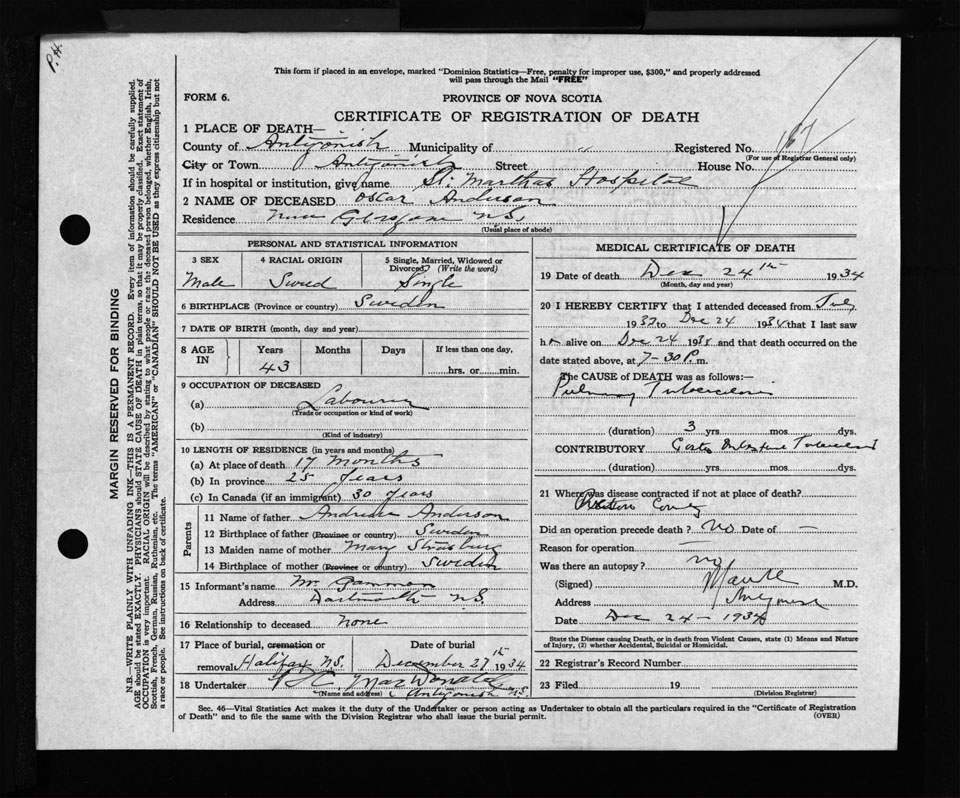 P.H.
This form if placed in an envelope, marked "Dominion Statistics—Free, penalty for improper use, $300," and properly addressed
will pass through the Mail "FREE"
FORM 6.
PROVINCE OF NOVA SCOTIA
CERTIFICATE OF REGISTRATION OF DEATH
1 PLACE OF DEATH—
County of Antigonish Municipality of " Registered No. 167
(For use of Registrar General only)
City or Town Antigonish Street House No.
If in hospital or institution, give name St. Marthas Hospital
2 NAME OF DECEASED Oscar Anderson
Residence New Glasgow N.S.
(Usual place of abode)
MARGIN RESERVED FOR BINDING
N.B.—WRITE PLAINLY WITH UNFADING INK—THIS IS A PERMANENT RECORD. Every item of information should be carefully supplied.
AGE should be stated EXACTLY. PHYSICIANS should STATE CAUSE OF DEATH in plain terms, so that it may be properly classified. Exact statement of
OCCUPATION is very important. RACIAL ORIGIN will be described by stating to what people or race the deceased person belonged, whether English, Irish,
Scottish, French, German, Russian, Ruthenian, etc. The terms "AMERICAN" or "CANADIAN" SHOULD NOT BE USED as they express citizenship but not
a race or people. See instructions on back of certificate.
PERSONAL AND STATISTICAL INFORMATION
3 SEX 4 RACIAL ORIGIN 5 Single, Married, Widowed or
Divorced? (Write the word)
Male Swed Single
6 BIRTHPLACE (Province or country) Sweden
7 DATE OF BIRTH (month, day and year)
8 AGE IN Years Months Days If less than one day,
43 hrs. or min.
9 OCCUPATION OF DECEASED
(a) Labourer
(Trade or occupation or kind of work)
(b)
(Kind of industry)
10 LENGTH OF RESIDENCE (in years and months)
(a) At place of death 17 months
(b) In province 25 years
(c) In Canada (if an immigrant) 30 years
Parents
11 Name of father Andrew Anderson
12 Birthplace of father (Province or country) Sweden
13 Maiden name of mother Mary
14 Birthplace of mother (Province or country) Sweden
15 Informant's name Mr. Gammon
Address Dartmouth N.S.
16 Relationship to deceased None
17 Place of burial, cremation or removal Date of burial
Halifax N.S. December 27th 1934
18 Undertaker MacDonald
(Name and address) Antigonish N.S.
MEDICAL CERTIFICATE OF DEATH
19 Date of death Dec 24th 1934
(Month, day and year)
20 I HEREBY CERTIFY that I attended deceased from July
193 to Dec 24 1934 that I last saw
h alive on Dec 24 193 and that death occurred on the
date stated above, at 7-30 P. m.
The CAUSE of DEATH was as follows:—
Pulmonary Tuberculosis
(duration) 3 yrs. mos. dys.
CONTRIBUTORY
(duration) yrs. mos. dys.
21 Where was disease contracted if not at place of death?
County
Did an operation precede death? No Date of —
Reason for operation —
Was there an autopsy? no
(Signed) M.D.
Address Antigonish
Date Dec 24 - 1934
State the Disease causing Death, or in death from Violent Causes, state (1) Means and Nature
of Injury, (2) whether Accidental, Suicidal or Homicidal.
22 Registrar's Record Number
23 Filed 19
(Division Registrar)
Sec. 46—Vital Statistics Act makes it the duty of the Undertaker or person acting as Undertaker to obtain all the particulars required in the "Certificate of Registration
of Death" and to file the same with the Division Registrar who shall issue the burial permit. (OVER)